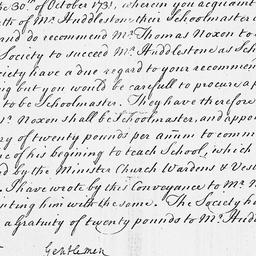 he 30th of October 1731, wherein you acquaint
th of Mr Huddleston their Schoolmaster
and do recommend Mr Thomas Noxon to
Society to succeed Mr Huddleston as Sch
ciety have a due regard to your recommen
ing but you would be carefull to procure a p
to be Schoolmaster. They have therefore
Mr. Noxon shall be Schoolmaster, and appo
ry of twenty pounds per annm to comm
me of his begining to teach School, which
ed by the Minster Church Wardens & Ves
I have wrote by this Conveyance to Mr N
inting him with the same. The Society h
a gratuity of twenty pounds to Mr Hudd
Gentlemen